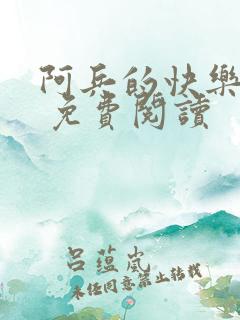 阿兵的快樂
免費閱讀
呂蘊嵐
未經同意禁止轉載